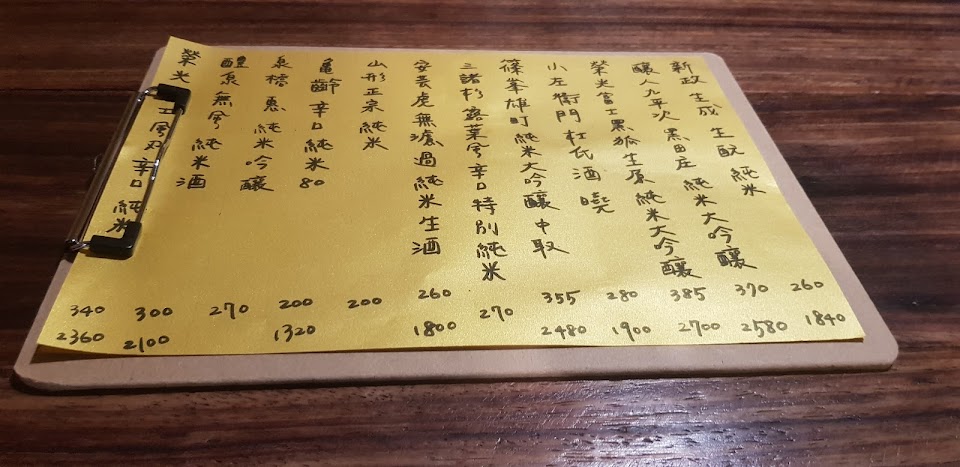 新政 生成 生酛 純米 260 1840
釀人九平次 黑田庄 純米大吟釀 370 2580
榮光富士 黑狐 生原 純米大吟釀 385 2700
小左衛門 杜氏酒 曉 280 1900
篠峯 雄町 純米大吟釀 中取 355 2480
三諸杉 露葉風 辛口 特別純米 270
安芸虎 無濾過 純米生酒 260 1800
山形正宗 純米 200
龜齡 辛口 純米 80 200 1320
泉橋 惠 純米吟釀 270
醴泉 無風 純米酒 300 2100
榮光 辛口 純米 340 2360